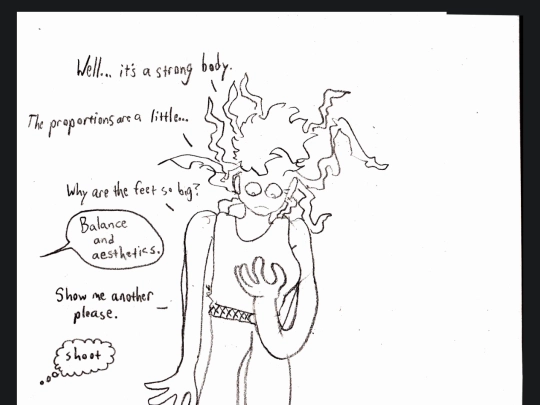 Well... it's a strong body.
The proportions are a little...
Why are the feet so big?
Balance
and
aesthetics.
Show me another
please.
shoot